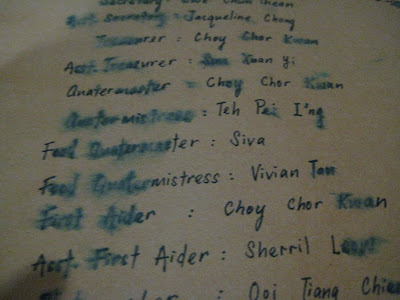 Secretary :
Asst. Secretary : Jacqueline Chong
Treasurer : Choy Chor Kwan
Asst. Treasurer : Kuan Yi
Quatermaster : Choy Chor Kwan
Quatermistress : Teh Pei I'ng
Food Quatermaster : Siva
Food Quatermistress : Vivian Tan
First Aider : Choy Chor Kwan
Asst. First Aider : Sherril
: Ooi Tiang